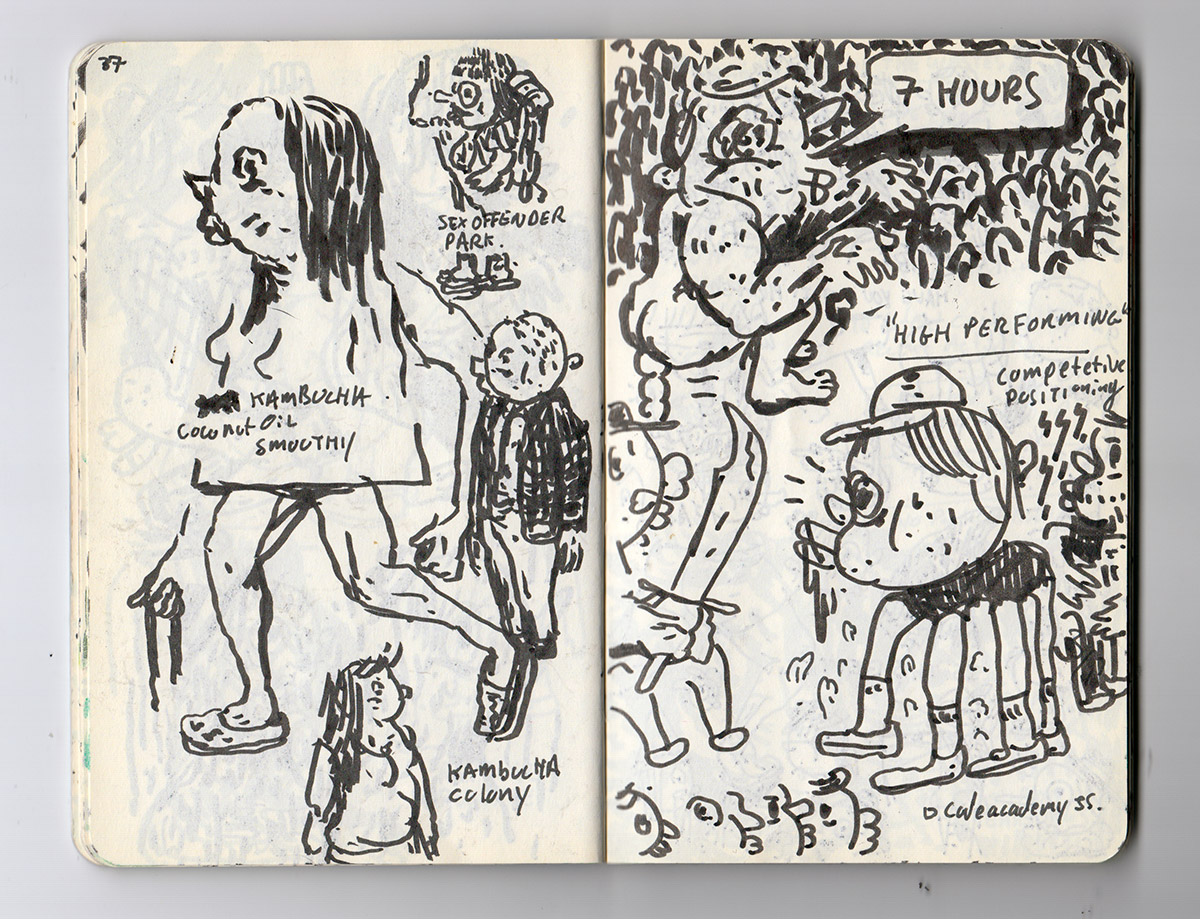 37
SEX OFFENDER
PARK.
KAMBUCHA
Coconut Oil
SMOOTHIY
KAMBUCHA
COLONY
7 HOURS
"HIGH PERFORMING"
Competetive
POSITIONING